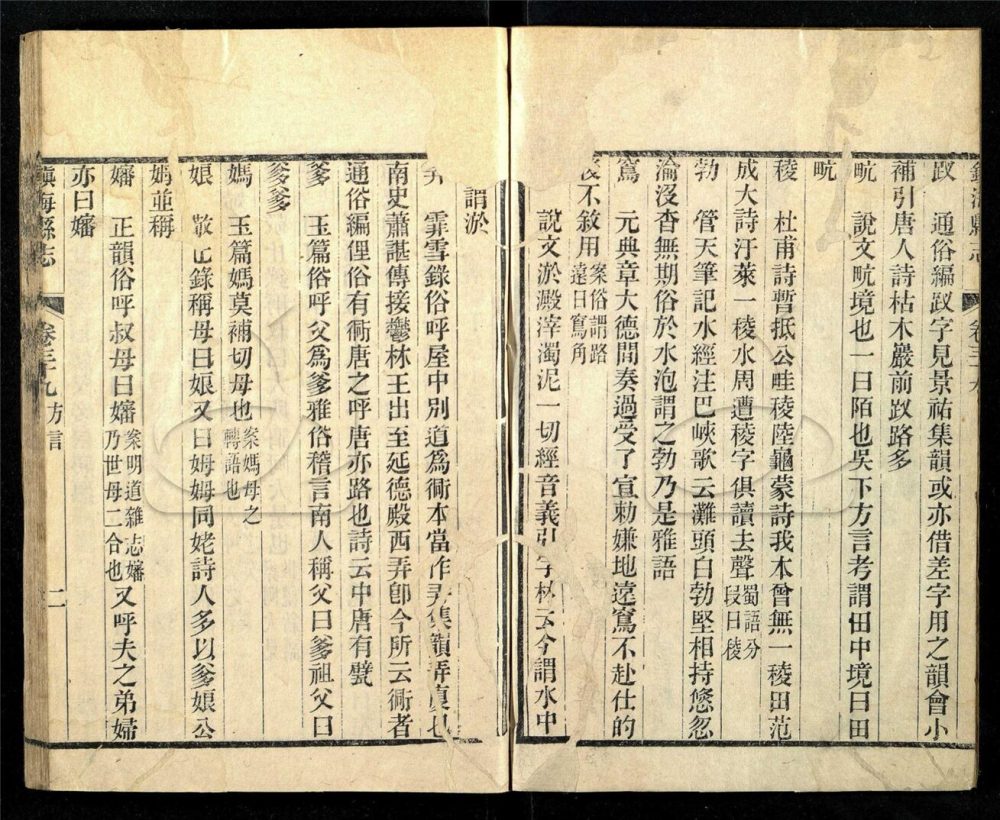 鎮海縣志 卷三十九
䟕 通俗編䟕字見景祐集韻或亦借差字用之韻會小
補引唐人詩枯木巖前䟕路多
畖 說文畖境也一曰陌也吳下方言考謂田中境曰田
畖
稜 杜甫詩暫抵公畦稜陸龜蒙詩我本曾無一稜田范
成大詩汙萊一稜水周遭稜字俱讀去聲蜀語分段曰稜
勃 管天筆記水經注巴峽歌云灘頭白勃堅相持悠忽
淪沒杳無期俗於水泡謂之勃乃是雅語
窵 元典章大德間奏過受了宣勅嫌地遠窵不赴仕的
後不敘用案俗謂路遠曰窵角
說文淤澱滓濁泥一切經音義引字林云今謂水中
謂淤
弄 霏雪錄俗呼屋中別道為衕本當作弄集韻弄厦也
南史蕭諶傳接鬱林王出至延德殿西弄卽今所云衕者
通俗編俚俗有衕唐之呼唐亦路也詩云中唐有甓
爹 玉篇俗呼父爲爹雅俗稽言南人稱父曰爹祖父曰
爹爹
媽 玉篇媽莫補切母也案媽母之轉語也
娘 敬止錄稱母曰娘又曰姆姆同姥詩人多以爹娘公
媽並稱
嬸 正韻俗呼叔母曰嬸案明道雜志嬸乃世母二合也又呼夫之弟婦
亦曰嬸
鎮海縣志 卷三十九 方言 二